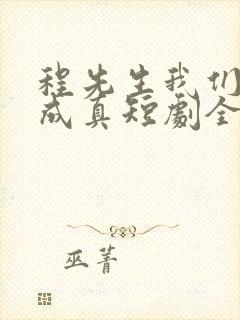 程先生我们
成真短劇全
巫菁